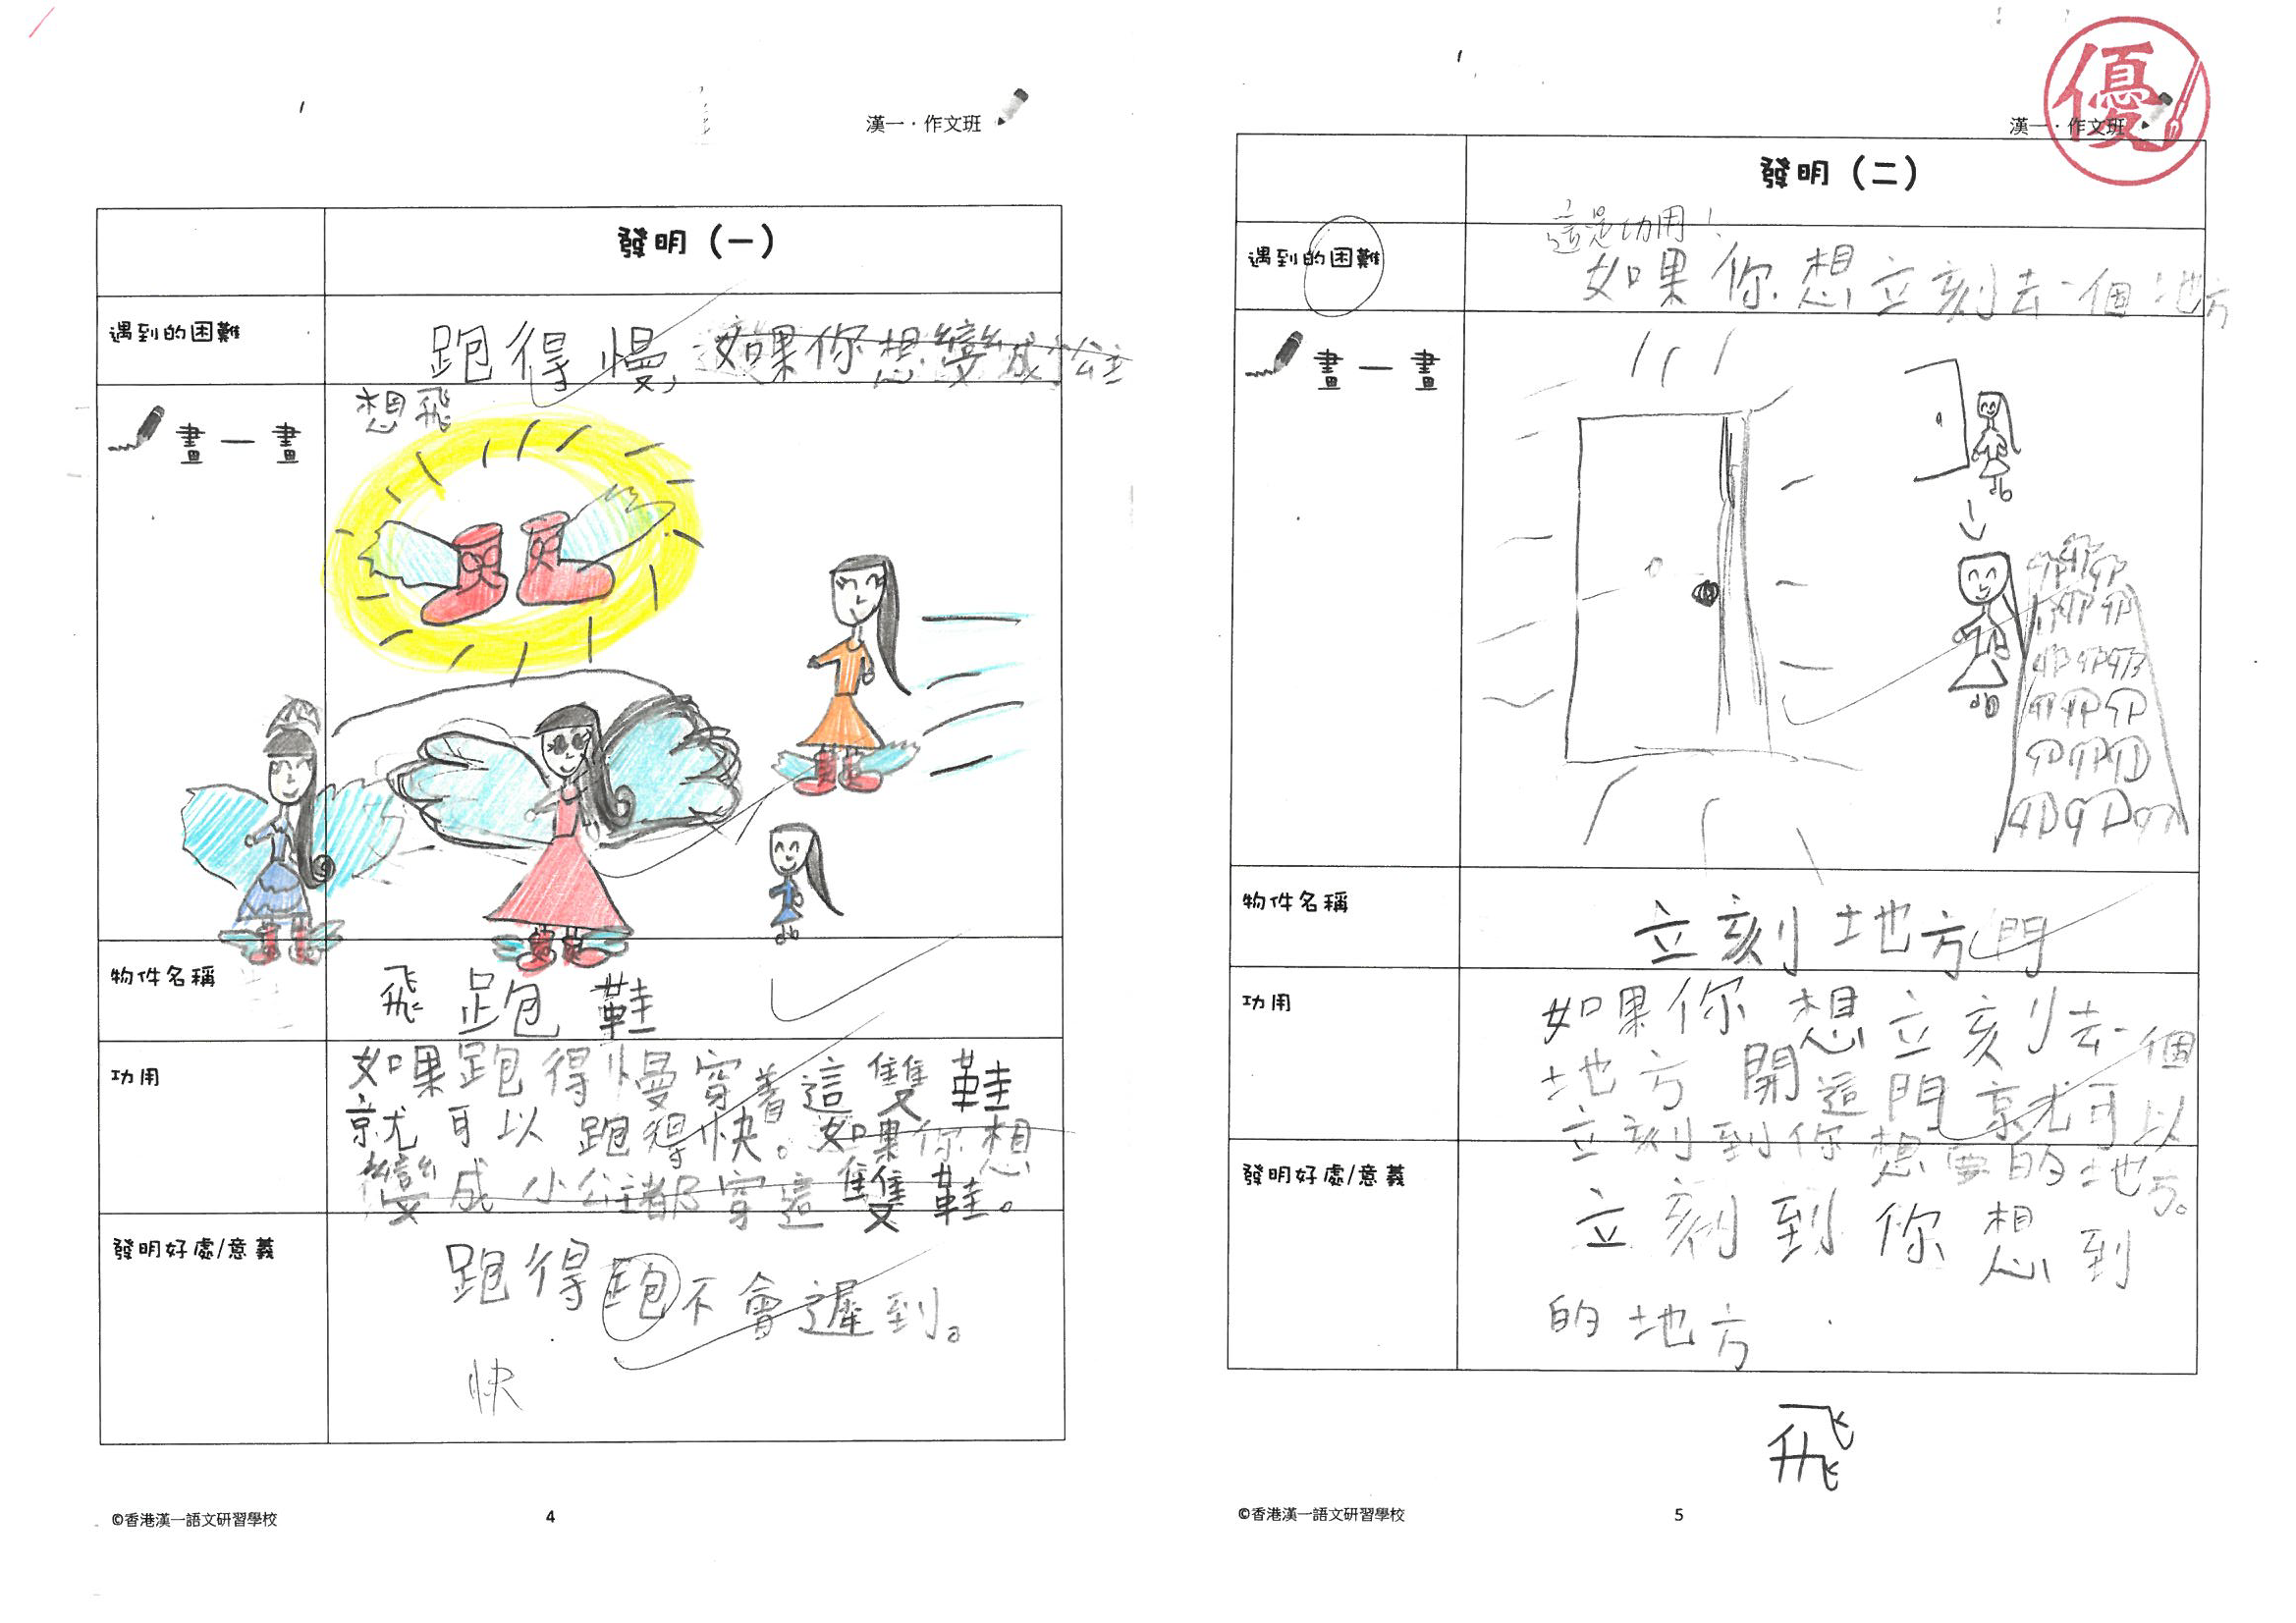 漢一·作文班
發明（一）
遇到的困難
跑得慢，如果你想變成小公主
想飛
畫一畫
物件名稱
飛跑鞋
功用
如果跑得慢穿著這雙鞋
就可以跑得快。如果你想
變成小公主都穿這雙鞋。
發明好處/意義
跑得跑不會遲到。
快
©香港漢一語文研習學校
4
優
漢一·作文班
發明（二）
這是功用！
遇到的困難
如果你想立刻去一個地方
畫一畫
物件名稱
立刻地方門
功用
如果你想立刻去一個
地方開這門就可以
立刻到你想要的地方。
發明好處/意義
立刻到你想到
的地方
飛
©香港漢一語文研習學校
5